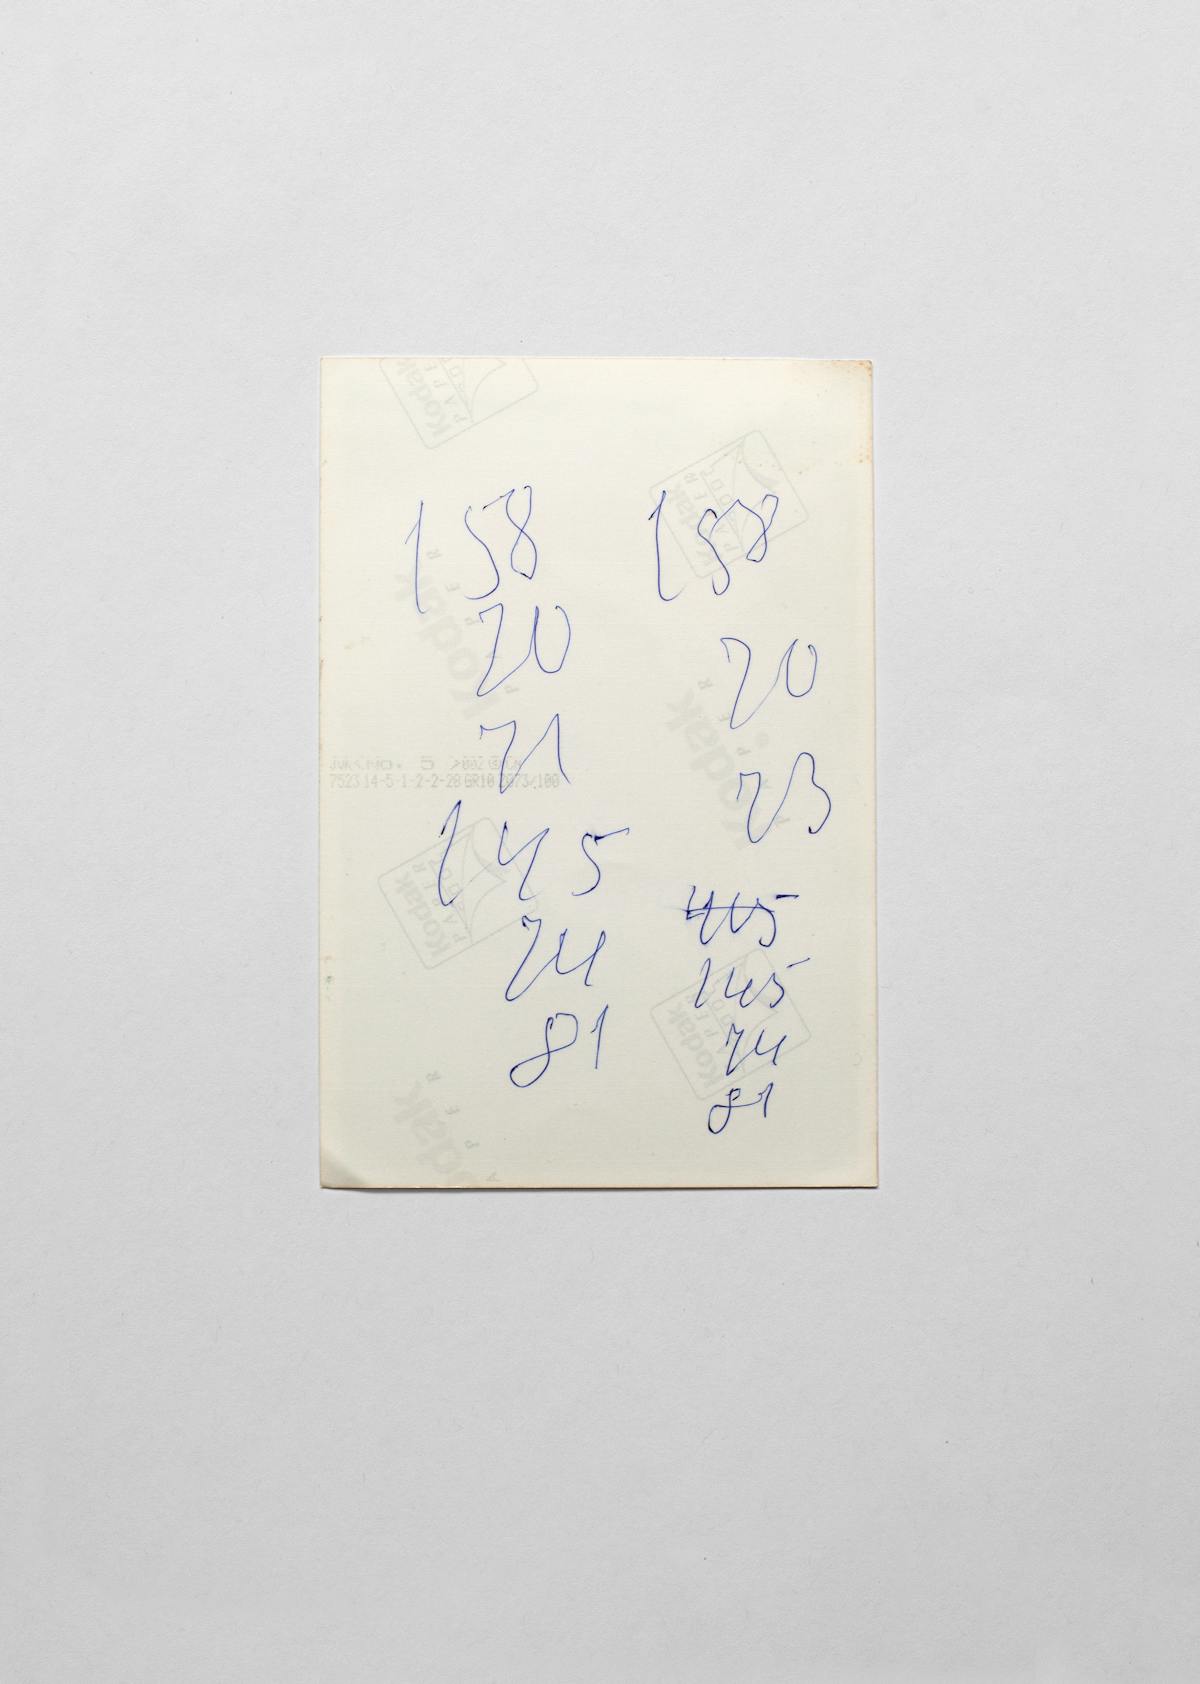 158
70
71
145
74
81
158
70
73
445
145
74
81
7523 14-5-1-2-2-28 GR10 2073/100
Kodak
PAPER
Kodak
PAPER
Kodak
PAPER
Kodak
PAPER
Kodak
Kodak
Kodak